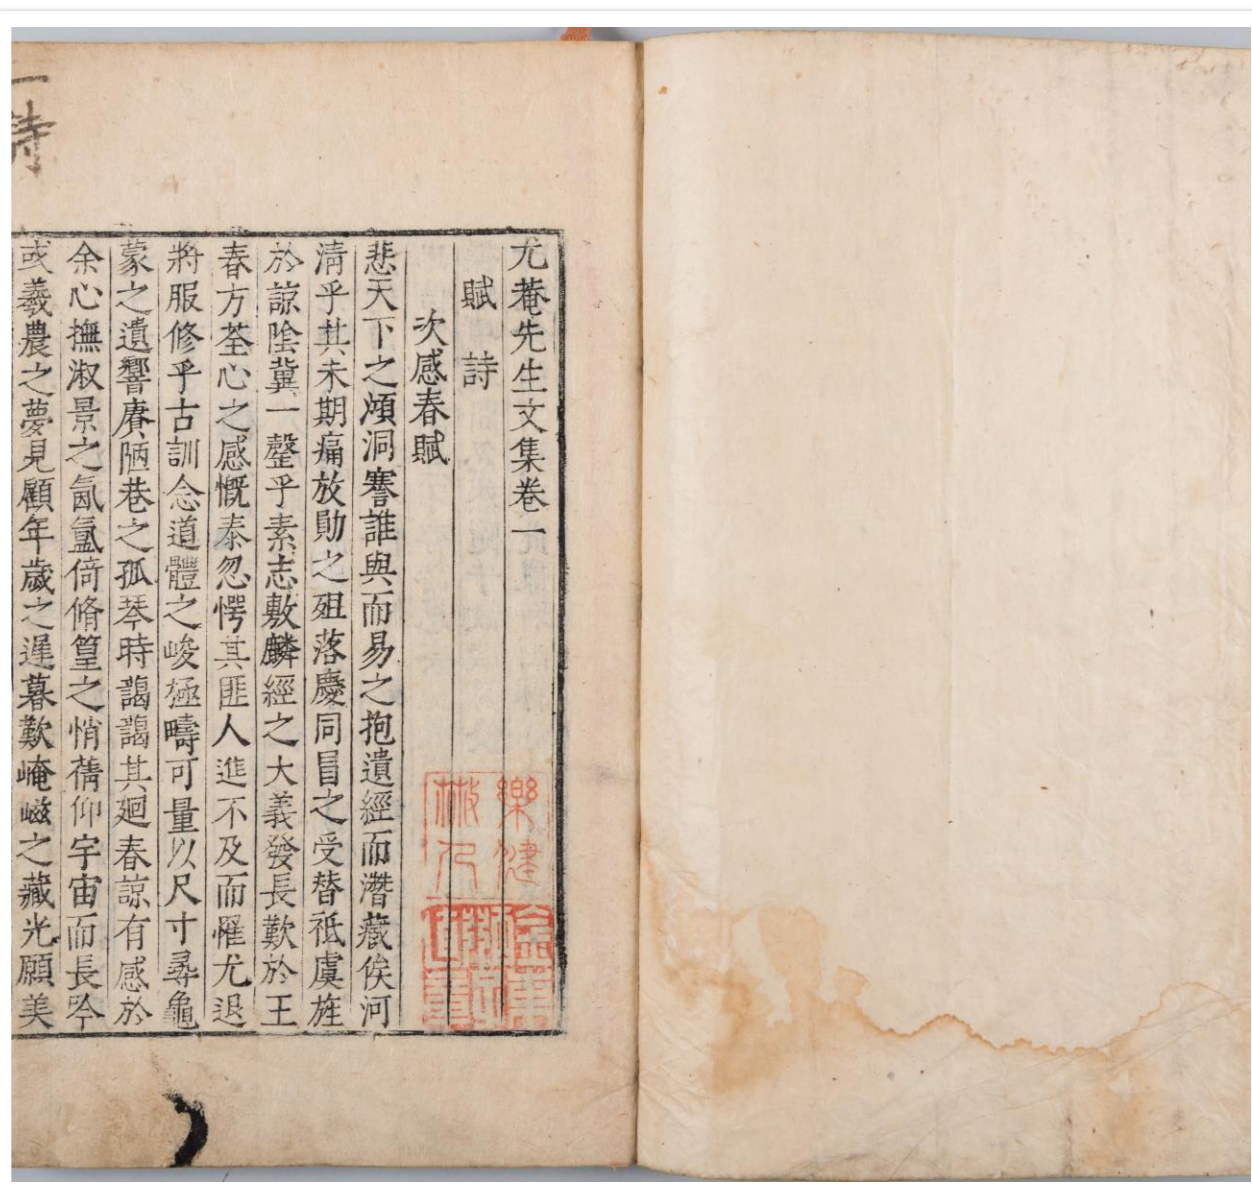 尤菴先生文集卷一
賦 詩
次感春賦
悲天下之澒洞謇誰與而易之抱遺經而潛藏俟河
淸乎其未期痛放勛之殂落慶同冒之受替祗虞旌
於諒陰冀一罄乎素志敷麟經之大義發長歎於王
春方荃心之感慨泰忽愕其匪人進不及而罹尤退
將服修乎古訓念道體之峻極疇可量以尺寸尋龜
蒙之遺響賡陋巷之孤琴時藹藹其廻春諒有感於
余心撫淑景之氤氳倚脩篁之悄蒨仰宇宙而長吟
或羲農之夢見顧年歲之遲暮歎崦嵫之藏光願美
一
詩